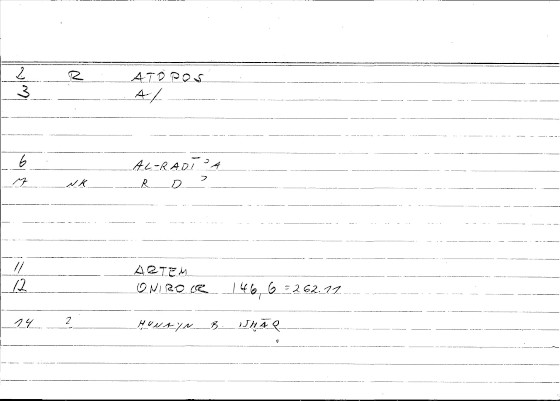 2 R ATOPOS
3 A/
6 AL-RADĪʾA
7 NK R D ʾ
11 ARTEM
12 ONIROCR 146,6 = 262.11
14 2 ḤUNAYN B ISḤĀQ